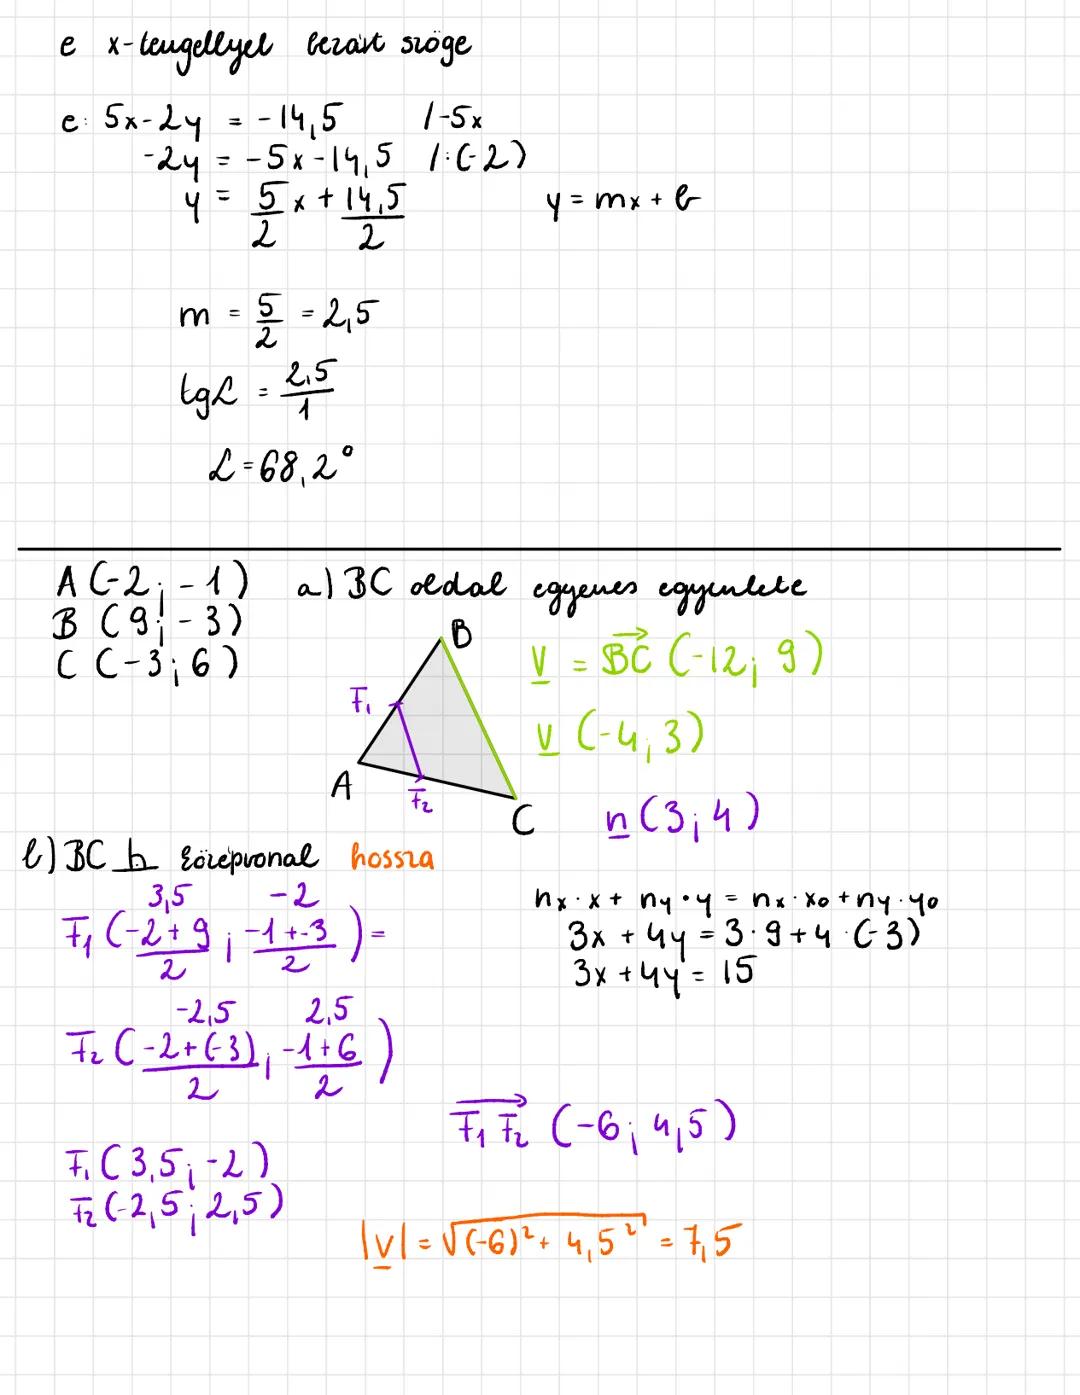 e x-tengellyel bezárt szöge
e: 5x-2y = -14,5 /-5x
-2y = -5x-14,5 /:(-2)
y = 5/2 x + 14,5/2 y = mx + b
m = 5/2 = 2,5
tgα = 2,5/1
α = 68,2°
A (-2; -1) a) BC oldal egyenes egyenlete
B (9; -3)
C (-3; 6)
B
v = BC (-12; 9)
F₁
v (-4; 3)
A
F₂
C
n (3; 4)
b) BC h középvonal hossza
3,5 -2
F₁ (-2+9/2 ; -1+-3/2) =
nx·x + ny·y = nx·x₀ + ny·y₀
3x + 4y = 3·9 + 4·(-3)
3x + 4y = 15
-2,5 2,5
F₂ (-2+(-3)/2 ; -1+6/2)
F₁F₂ (-6; 4,5)
F₁ (3,5; -2)
F₂ (-2,5; 2,5)
|v| = √(-6)² + 4,5² = 7,5